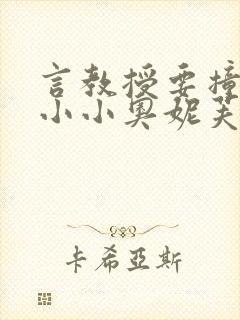 言教授要撞
小小奥妮芙
卡希亞斯